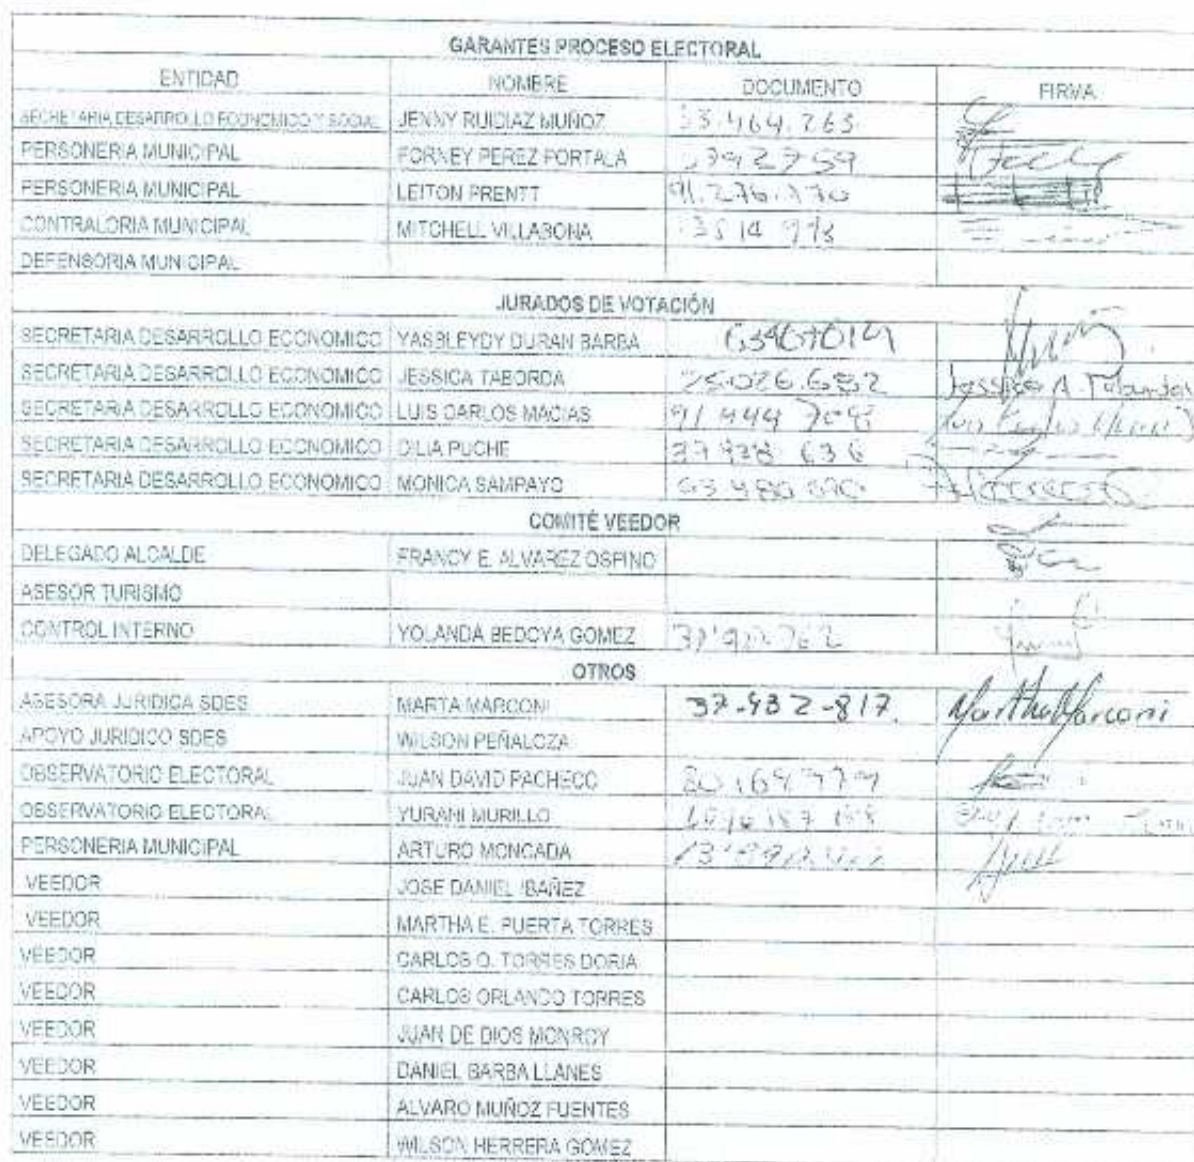 GARANTES PROCESO ELECTORAL
ENTIDAD NOMBRE DOCUMENTO FIRMA
SECRETARIA DESARROLLO ECONOMICO Y SOCIAL JENNY RUIDIAZ MUÑOZ
PERSONERIA MUNICIPAL FORNEY PEREZ PORTALA
PERSONERIA MUNICIPAL LEITON PRENTT
CONTRALORIA MUNICIPAL MITCHELL VILLABONA
DEFENSORIA MUNICIPAL
JURADOS DE VOTACIÓN
SECRETARIA DESARROLLO ECONOMICO YASBLEYDY DURAN BARBA
SECRETARIA DESARROLLO ECONOMICO JESSICA TABORDA Jessica A
SECRETARIA DESARROLLO ECONOMICO LUIS CARLOS MACIAS
SECRETARIA DESARROLLO ECONOMICO DILIA PUCHE
SECRETARIA DESARROLLO ECONOMICO MONICA SAMPAYO
COMITÉ VEEDOR
DELEGADO ALCALDE FRANCY E. ALVAREZ OSPINO
ASESOR TURISMO
CONTROL INTERNO YOLANDA BEDOYA GOMEZ
OTROS
ASESORA JURIDICA SDES MARTA MARCONI 37-932-817 Martha Marconi
APOYO JURIDICO SDES WILSON PEÑALOZA
OBSERVATORIO ELECTORAL JUAN DAVID PACHECO
OBSERVATORIO ELECTORAL YURANI MURILLO
PERSONERIA MUNICIPAL ARTURO MONCADA
VEEDOR JOSE DANIEL IBAÑEZ
VEEDOR MARTHA E. PUERTA TORRES
VEEDOR CARLOS O. TORRES DORIA
VEEDOR CARLOS ORLANDO TORRES
VEEDOR JUAN DE DIOS MONROY
VEEDOR DANIEL BARBA LLANES
VEEDOR ALVARO MUÑOZ FUENTES
VEEDOR WILSON HERRERA GOMEZ